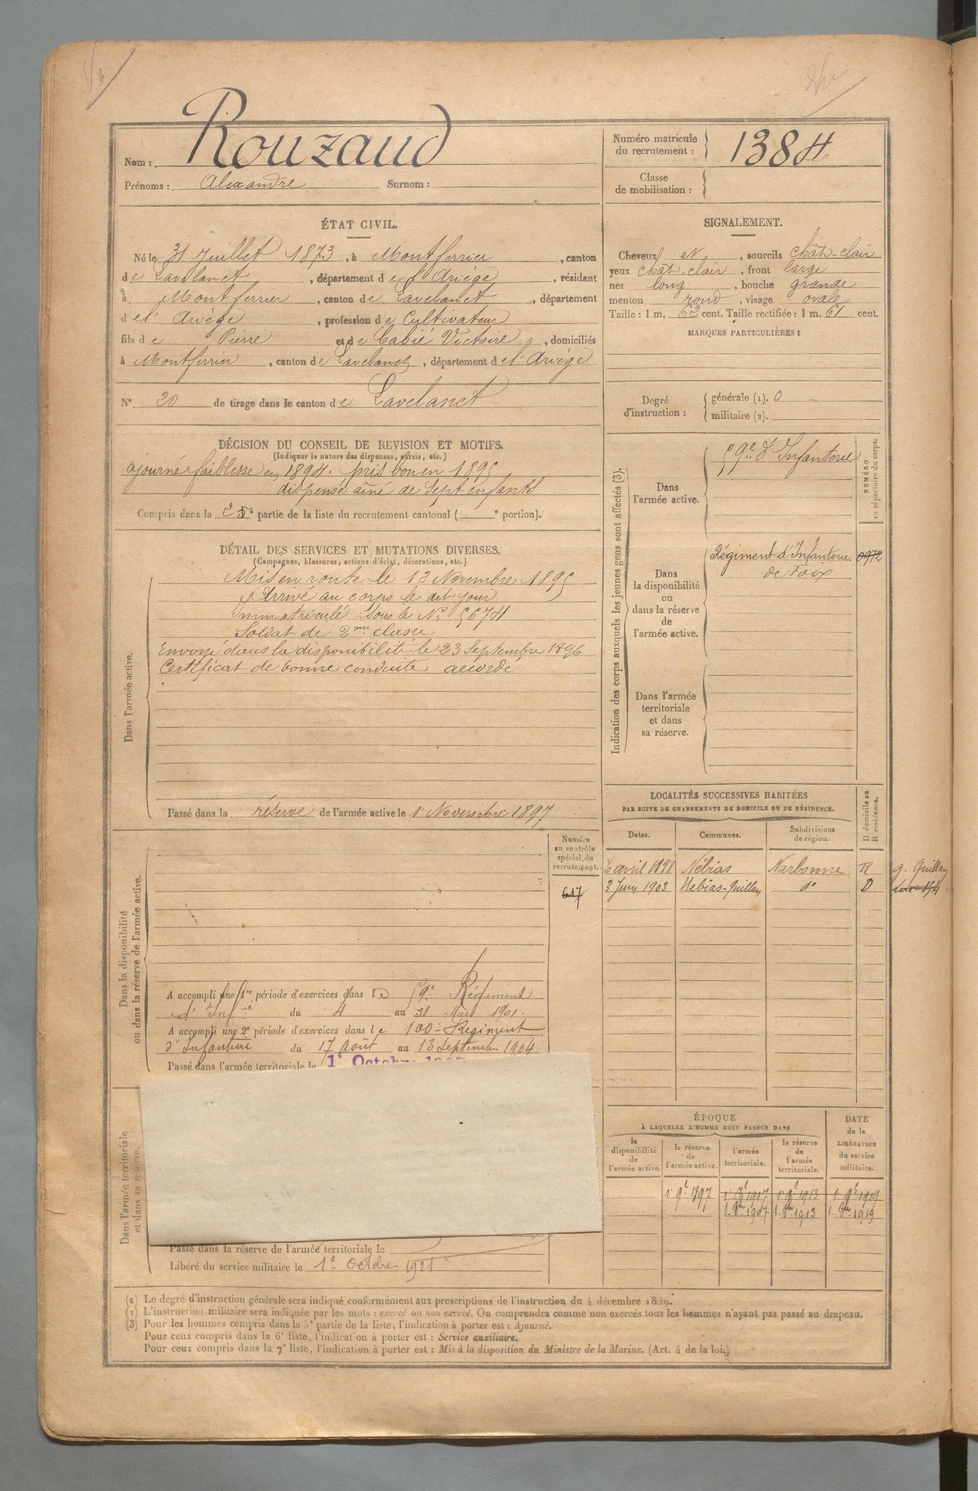 Nom : Rouzaud
Prénoms : Alexandre Surnom :
Numéro matricule du recrutement : 1384
Classe de mobilisation :
ÉTAT CIVIL.
Né le 31 Juillet 1873, à Montferrier, canton
de Lavelanet, département de l'Ariège, résidant
à Montferrier, canton de Lavelanet, département
de l'Ariège, profession de Cultivateur
fils de Pierre et de Cabié Victoire, domiciliés
à Montferrier, canton de Lavelanet, département de l'Ariège
N° 20 de tirage dans le canton de Lavelanet
SIGNALEMENT.
Cheveux et, sourcils chât-clair
yeux chât-clair, front large
nez long, bouche grande
menton rond, visage ovale
Taille : 1 m. 63 cent. Taille rectifiée : 1 m. 61 cent.
MARQUES PARTICULIÈRES :
Degré d'instruction :
générale (1). 0
militaire (2).
DÉCISION DU CONSEIL DE REVISION ET MOTIFS.
(Indiquer la nature des dispenses, sursis, etc.)
ajourné faiblesse en 1894. pris bon en 1895
dispensé aîné de sept enfants
Compris dans la partie de la liste du recrutement cantonal ( ° portion).
DÉTAIL DES SERVICES ET MUTATIONS DIVERSES.
(Campagnes, blessures, actions d'éclat, décorations, etc.)
Dans l'armée active.
Mis en route le 13 Novembre 1895
Arrivé au corps le dit jour
immatriculé sous le N° 5674
Soldat de 2me classe
Envoyé dans la disponibilité le 23 Septembre 1896
Certificat de bonne conduite accordé
Passé dans la réserve de l'armée active le 1 Novembre 1897
Indication des corps auxquels les jeunes gens sont affectés (3).
NUMÉRO au répertoire du corps.
Dans l'armée active.
59e d'Infanterie
Dans la disponibilité ou dans la réserve de l'armée active.
Régiment d'Infanterie
de Foix
0972
Dans l'armée territoriale et dans sa réserve.
LOCALITÉS SUCCESSIVES HABITÉES
PAR SUITE DE CHANGEMENTS DE DOMICILE OU DE RÉSIDENCE.
Dates. Communes. Subdivisions de région. D domicile ou R résidence.
6 avril 1898 Nébias Narbonne R g. Quillan
3 Juin 1903 Nébias-Quillan d° D
Dans la disponibilité ou dans la réserve de l'armée active.
Numéro au contrôle spécial du recrutement.
617
A accompli une 1re période d'exercices dans le 59e Régiment
d'Infie du 4 au 31 1901.
A accompli une 2e période d'exercices dans le 100e Régiment
d'Infanterie du 17 Août au 13 Septembre 1904
Passé dans l'armée territoriale le 1r Octobre
Dans l'armée territoriale et dans sa réserve.
Passé dans la réserve de l'armée territoriale le
Libéré du service militaire le 1er Octobre 1921
ÉPOQUE
À LAQUELLE L'HOMME DOIT PASSER DANS
DATE de la LIBÉRATION du service militaire.
la disponibilité de l'armée active. la réserve de l'armée active. l'armée territoriale. la réserve de l'armée territoriale.
1r 9e 1897 1r 9e 1907 1r 9e 1913 1r 9e 1919
1907 1913 1919
(1) Le degré d'instruction générale sera indiqué conformément aux prescriptions de l'instruction du 4 décembre 1889.
(2) L'instruction militaire sera indiquée par les mots : exercé ou non exercé. On comprendra comme non exercés tous les hommes n'ayant pas passé au drapeau.
(3) Pour les hommes compris dans la 5e partie de la liste, l'indication à porter est : Ajourné.
Pour ceux compris dans la 6e liste, l'indication à porter est : Service auxiliaire.
Pour ceux compris dans la 7e liste, l'indication à porter est : Mis à la disposition du Ministre de la Marine. (Art. 4 de la loi.)